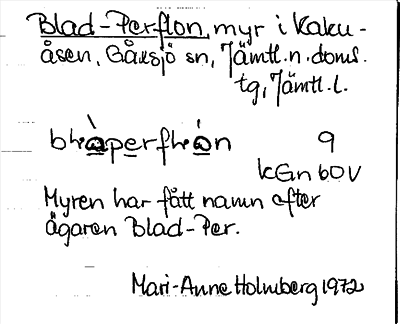 Blad-Perflon, myr i Kaku-
åsen, Gåxsjö sn, Jämtl. n. doms.
tg, Jämtl. l.
9
kGn 60V
Myren har fått namn efter
ägaren Blad-Per.
Mari-Anne Holmberg 1972